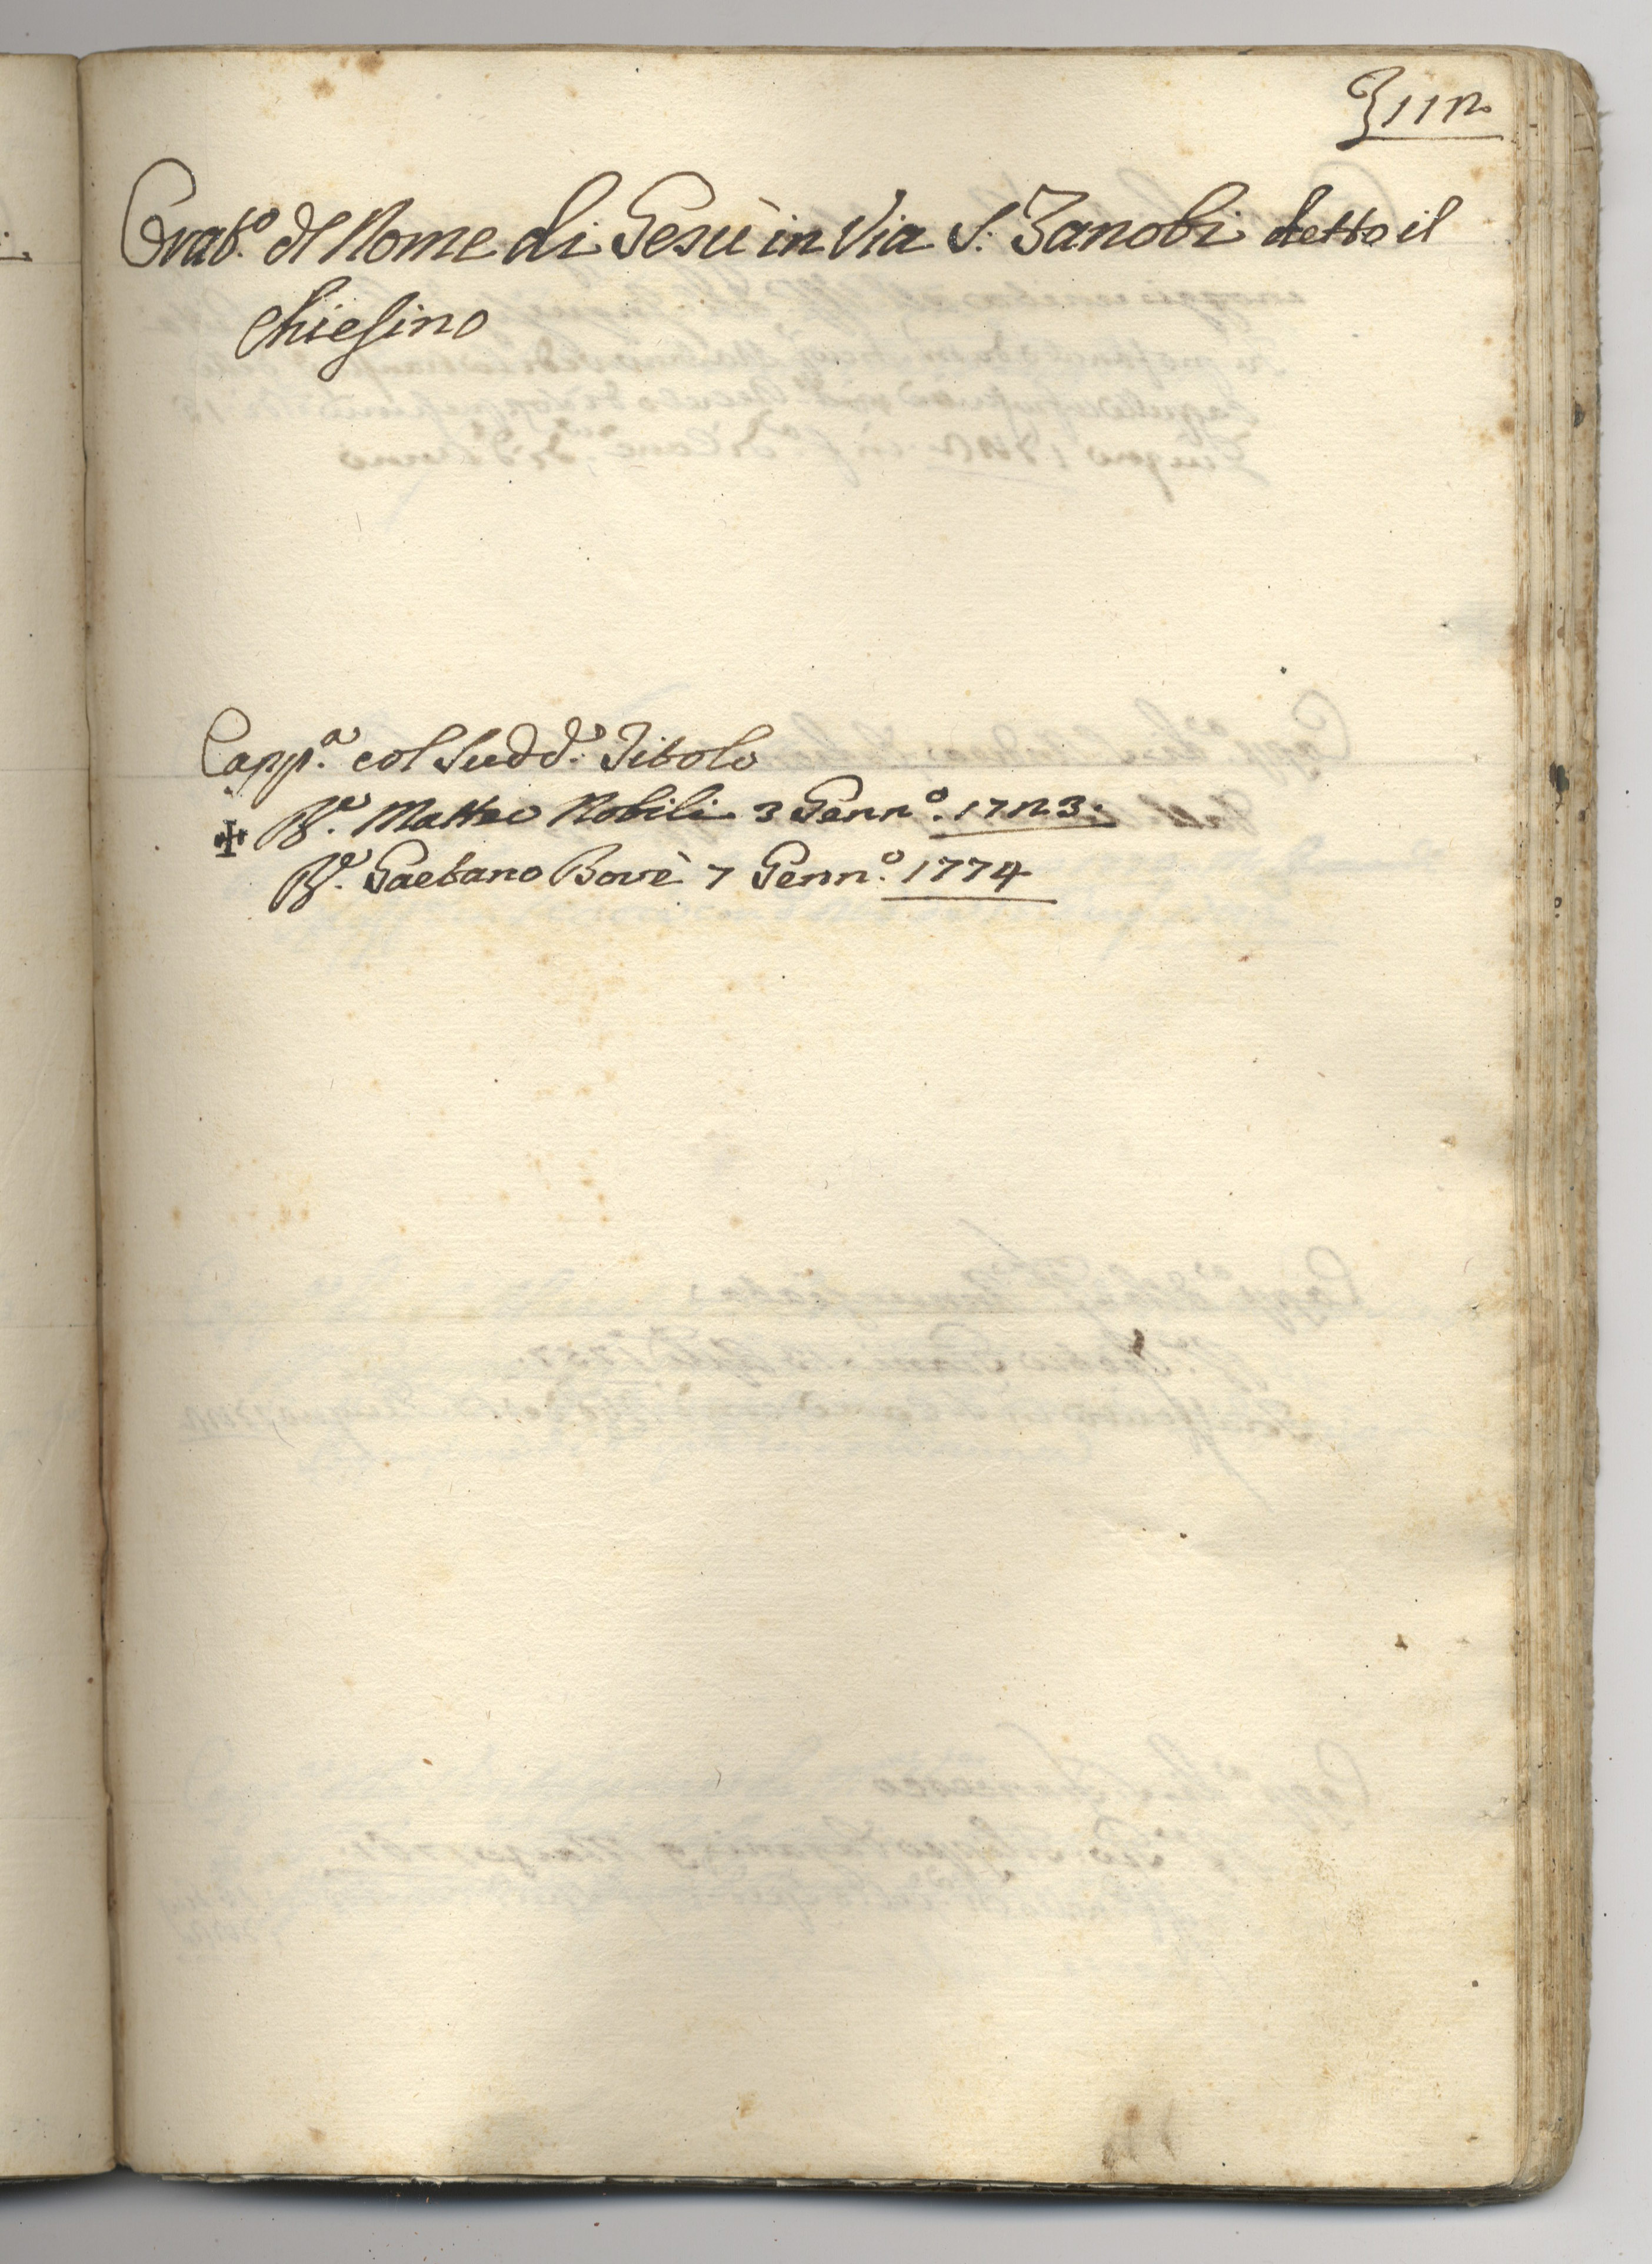 112
Orat.º del Nome di Gesù in Via S. Zanobi detto il
Chiesino
Capp.ª col Sudd.º Titolo
✠ P.e Matteo Nobili 3 Genn.º 1723.
P.e Gaetano Bovè 7 Genn.º 1774